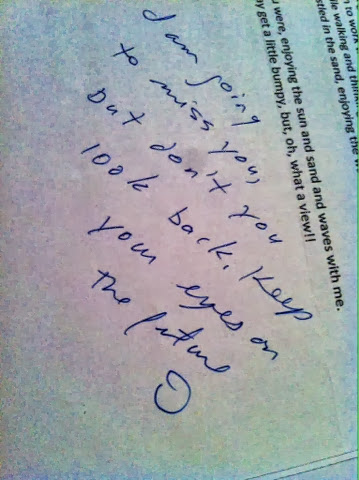 to work
le walking and thin
stled in the sand, enjoying the w
u were, enjoying the sun and sand and waves with me.
ay get a little bumpy, but, oh, what a view!!
I am going
to miss you,
But don't you
look back. Keep
your eyes on
the future